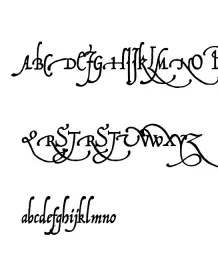 ABC DEFG HIJKLM NO P
QRSTRSTUVWXYZ
abcdefghijklmno